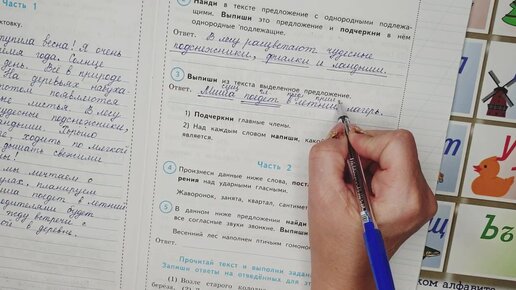 Часть 1
тупила весна! Я очень
емя года. Солнце
день. Всё в природе
На деревьях набуха
потом появляются
ные листья. В лесу
удесные подснежники,
андыши. Хорошо
ходить по мягкой
дышать свежими
мы мечтаем о
улах, планируем
ша поедет в летний
одителями будет
жду встречи с
й в деревне.
Найди в тексте предложение с однородными подлежа-
щими. Выпиши это предложение и подчеркни в нём
однородные подлежащие.
Ответ. В лесу расцветают чудесные
подснежники, фиалки и ландыши.
3 Выпиши из текста выделенное предложение.
сущ. гл. пред. прил.
Ответ. Миша поедет в летний лагерь.
1) Подчеркни главные члены.
2) Над каждым словом напиши, како
является.
Часть 2
4 Произнеси данные ниже слова, пост
рения над ударными гласными.
Жаворонок, занята, квартал, сантимет
5 В данном ниже предложении найди
все согласные звуки звонкие. Выпиши
Весенний лес наполнен птичьим гомоном
Ответ.
Прочитай текст и выполни зада
Запиши ответы на отведённых для эт
(1) Возле старого колод
Щ
Ъъ
ком алфавите